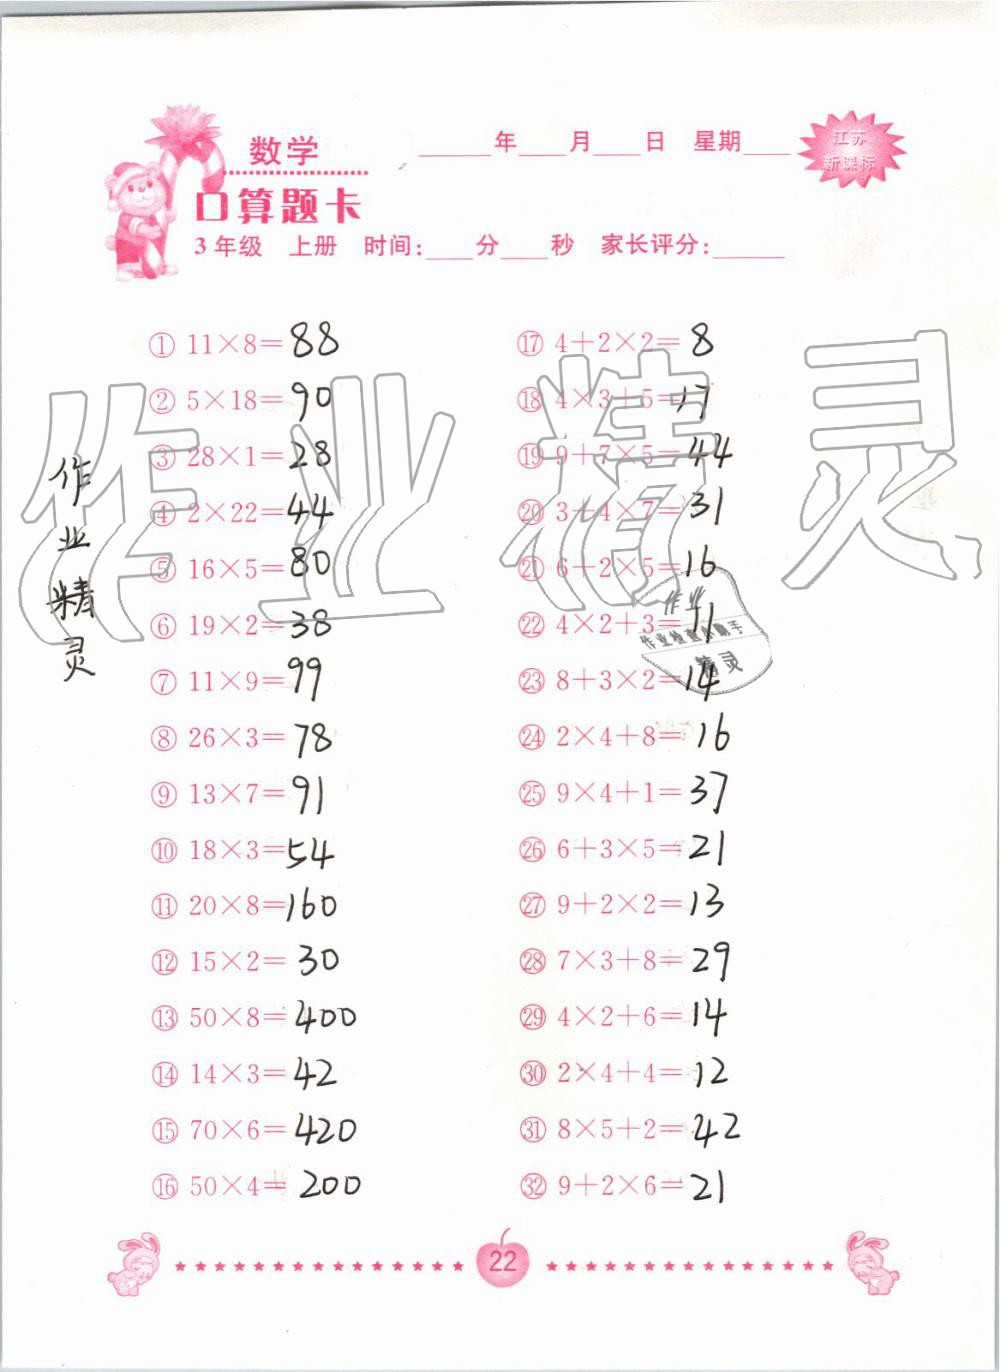 数学
____年____月____日 星期____
江苏
新课标
口算题卡
3年级 上册 时间:____分____秒 家长评分:______
① 11×8=88
② 5×18=90
③ 28×1=28
④ 2×22=44
⑤ 16×5=80
⑥ 19×2=38
⑦ 11×9=99
⑧ 26×3=78
⑨ 13×7=91
⑩ 18×3=54
⑪ 20×8=160
⑫ 15×2=30
⑬ 50×8=400
⑭ 14×3=42
⑮ 70×6=420
⑯ 50×4=200
⑰ 4+2×2=8
⑱ 4×3+5=17
⑲ 9+7×5=44
⑳ 3+4×7=31
㉑ 6+2×5=16
㉒ 4×2+3=11
㉓ 8+3×2=14
㉔ 2×4+8=16
㉕ 9×4+1=37
㉖ 6+3×5=21
㉗ 9+2×2=13
㉘ 7×3+8=29
㉙ 4×2+6=14
㉚ 2×4+4=12
㉛ 8×5+2=42
㉜ 9+2×6=21
作业精灵
作业精灵
作业
作业检查小助手
精灵
22